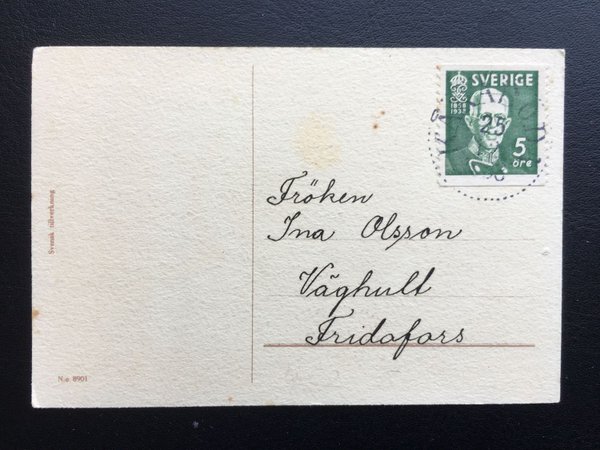 SVERIGE
1858
1938
5
öre
25
Fröken
Ina Olsson
Väghult
Fridafors
Svensk tillverkning
N:o 8901